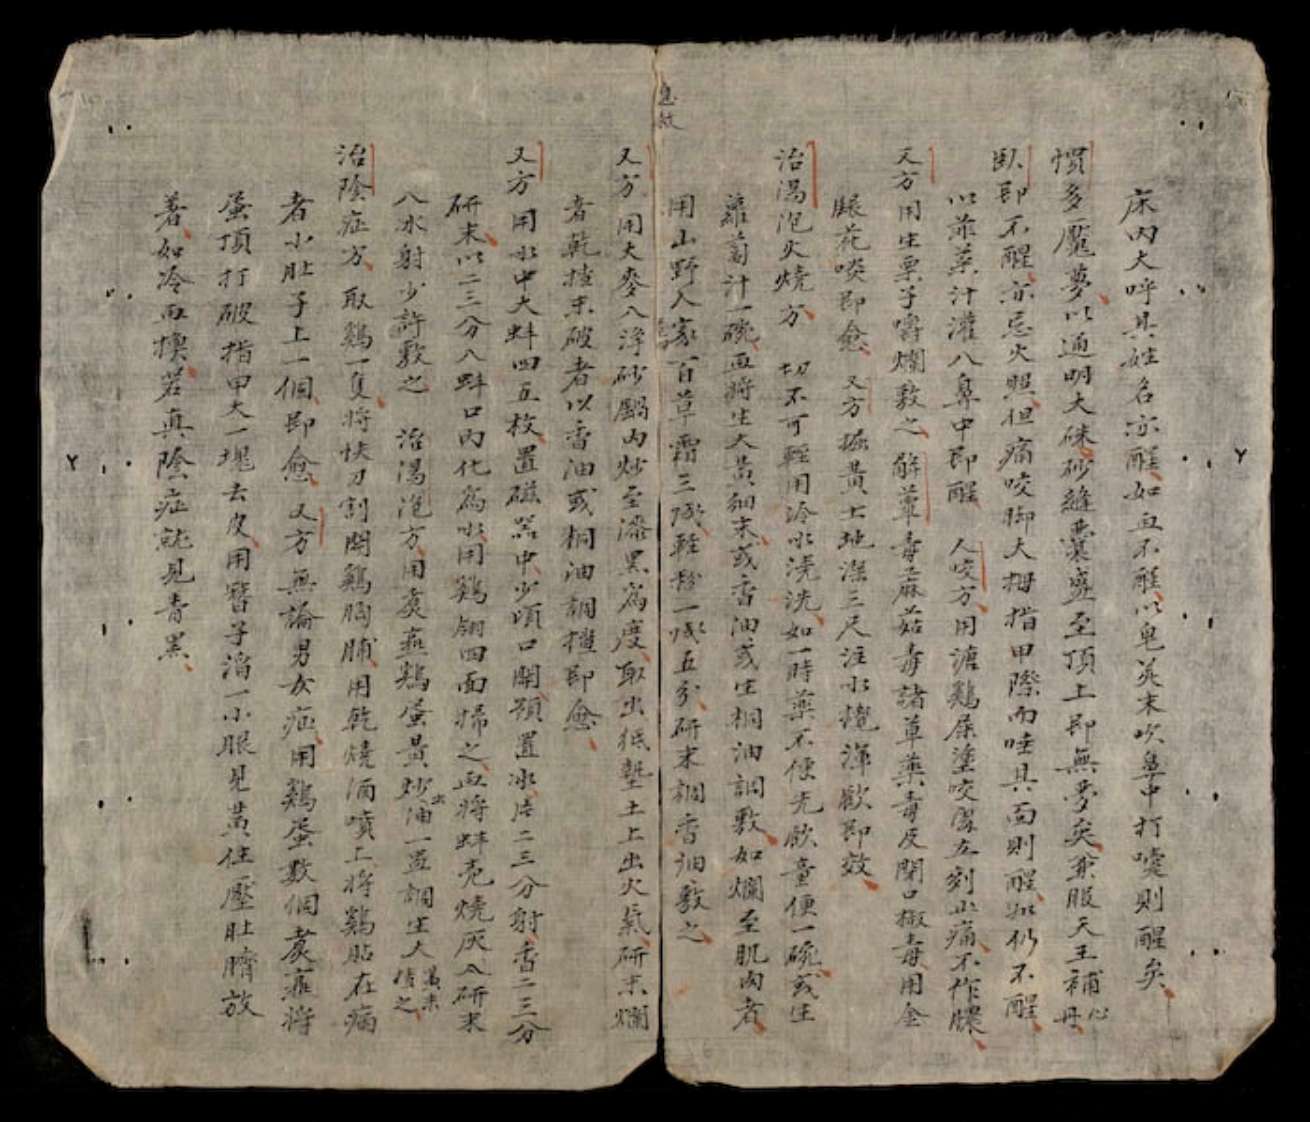 床內大呼其姓名亦醒如血不醒以皂莢末吹鼻中打嚏則醒矣
慣多魘夢以通明大硃砂縫囊盛至頂上即無夢矣兼服天王補心丹
臥即不醒亦忌火照但痛咬脚大拇指甲際而唾其面則醒如仍不醒
以韭菜汁灌入鼻中即醒 人咬方用溏鷄屎塗咬處立刻止痛不作膿
又方用生栗子嚼爛敷之 解蕈毒蔴菇毒諸草藥毒及閉口椒毒用金
銀花啖即愈 又方掘黃土地深三尺注水攪渾飲即效
治湯泡火燒方 切不可輕用冷水澆洗如一時藥不便先飲童便一碗或生
蘿蔔汁一碗再將生大黃細末或香油或生桐油調敷如爛至肌肉者
用山野人家百草霜三錢輕粉一錢五分研末調香油敷之
急救
又方用大麥入淨砂鍋內炒至漆黑為度取出紙墊土上出火氣研末爛
者乾摻未破者以香油或桐油調擦即愈
又方用水中大蚌四五枚置磁器中少頃口開預置冰片二三分射香二三分
研末以二三分入蚌口內化為水用鷄翎四面掃之再將蚌壳燒灰入研末
入冰射少許敷之 治湯泡方用煮熟鷄蛋黃炒出油一盞調生大黃末搽之
治陰症方取鷄一隻將快刀割開鷄胸脯用乾燒酒噴上將鷄貼在病
者小肚子上一個即愈 又方無論男女症用鷄蛋數個煮熟將
蛋頂打破指甲大一塊去皮用簪子淌一小眼見黃住壓肚臍放
着如冷再換若真陰症就見青黑